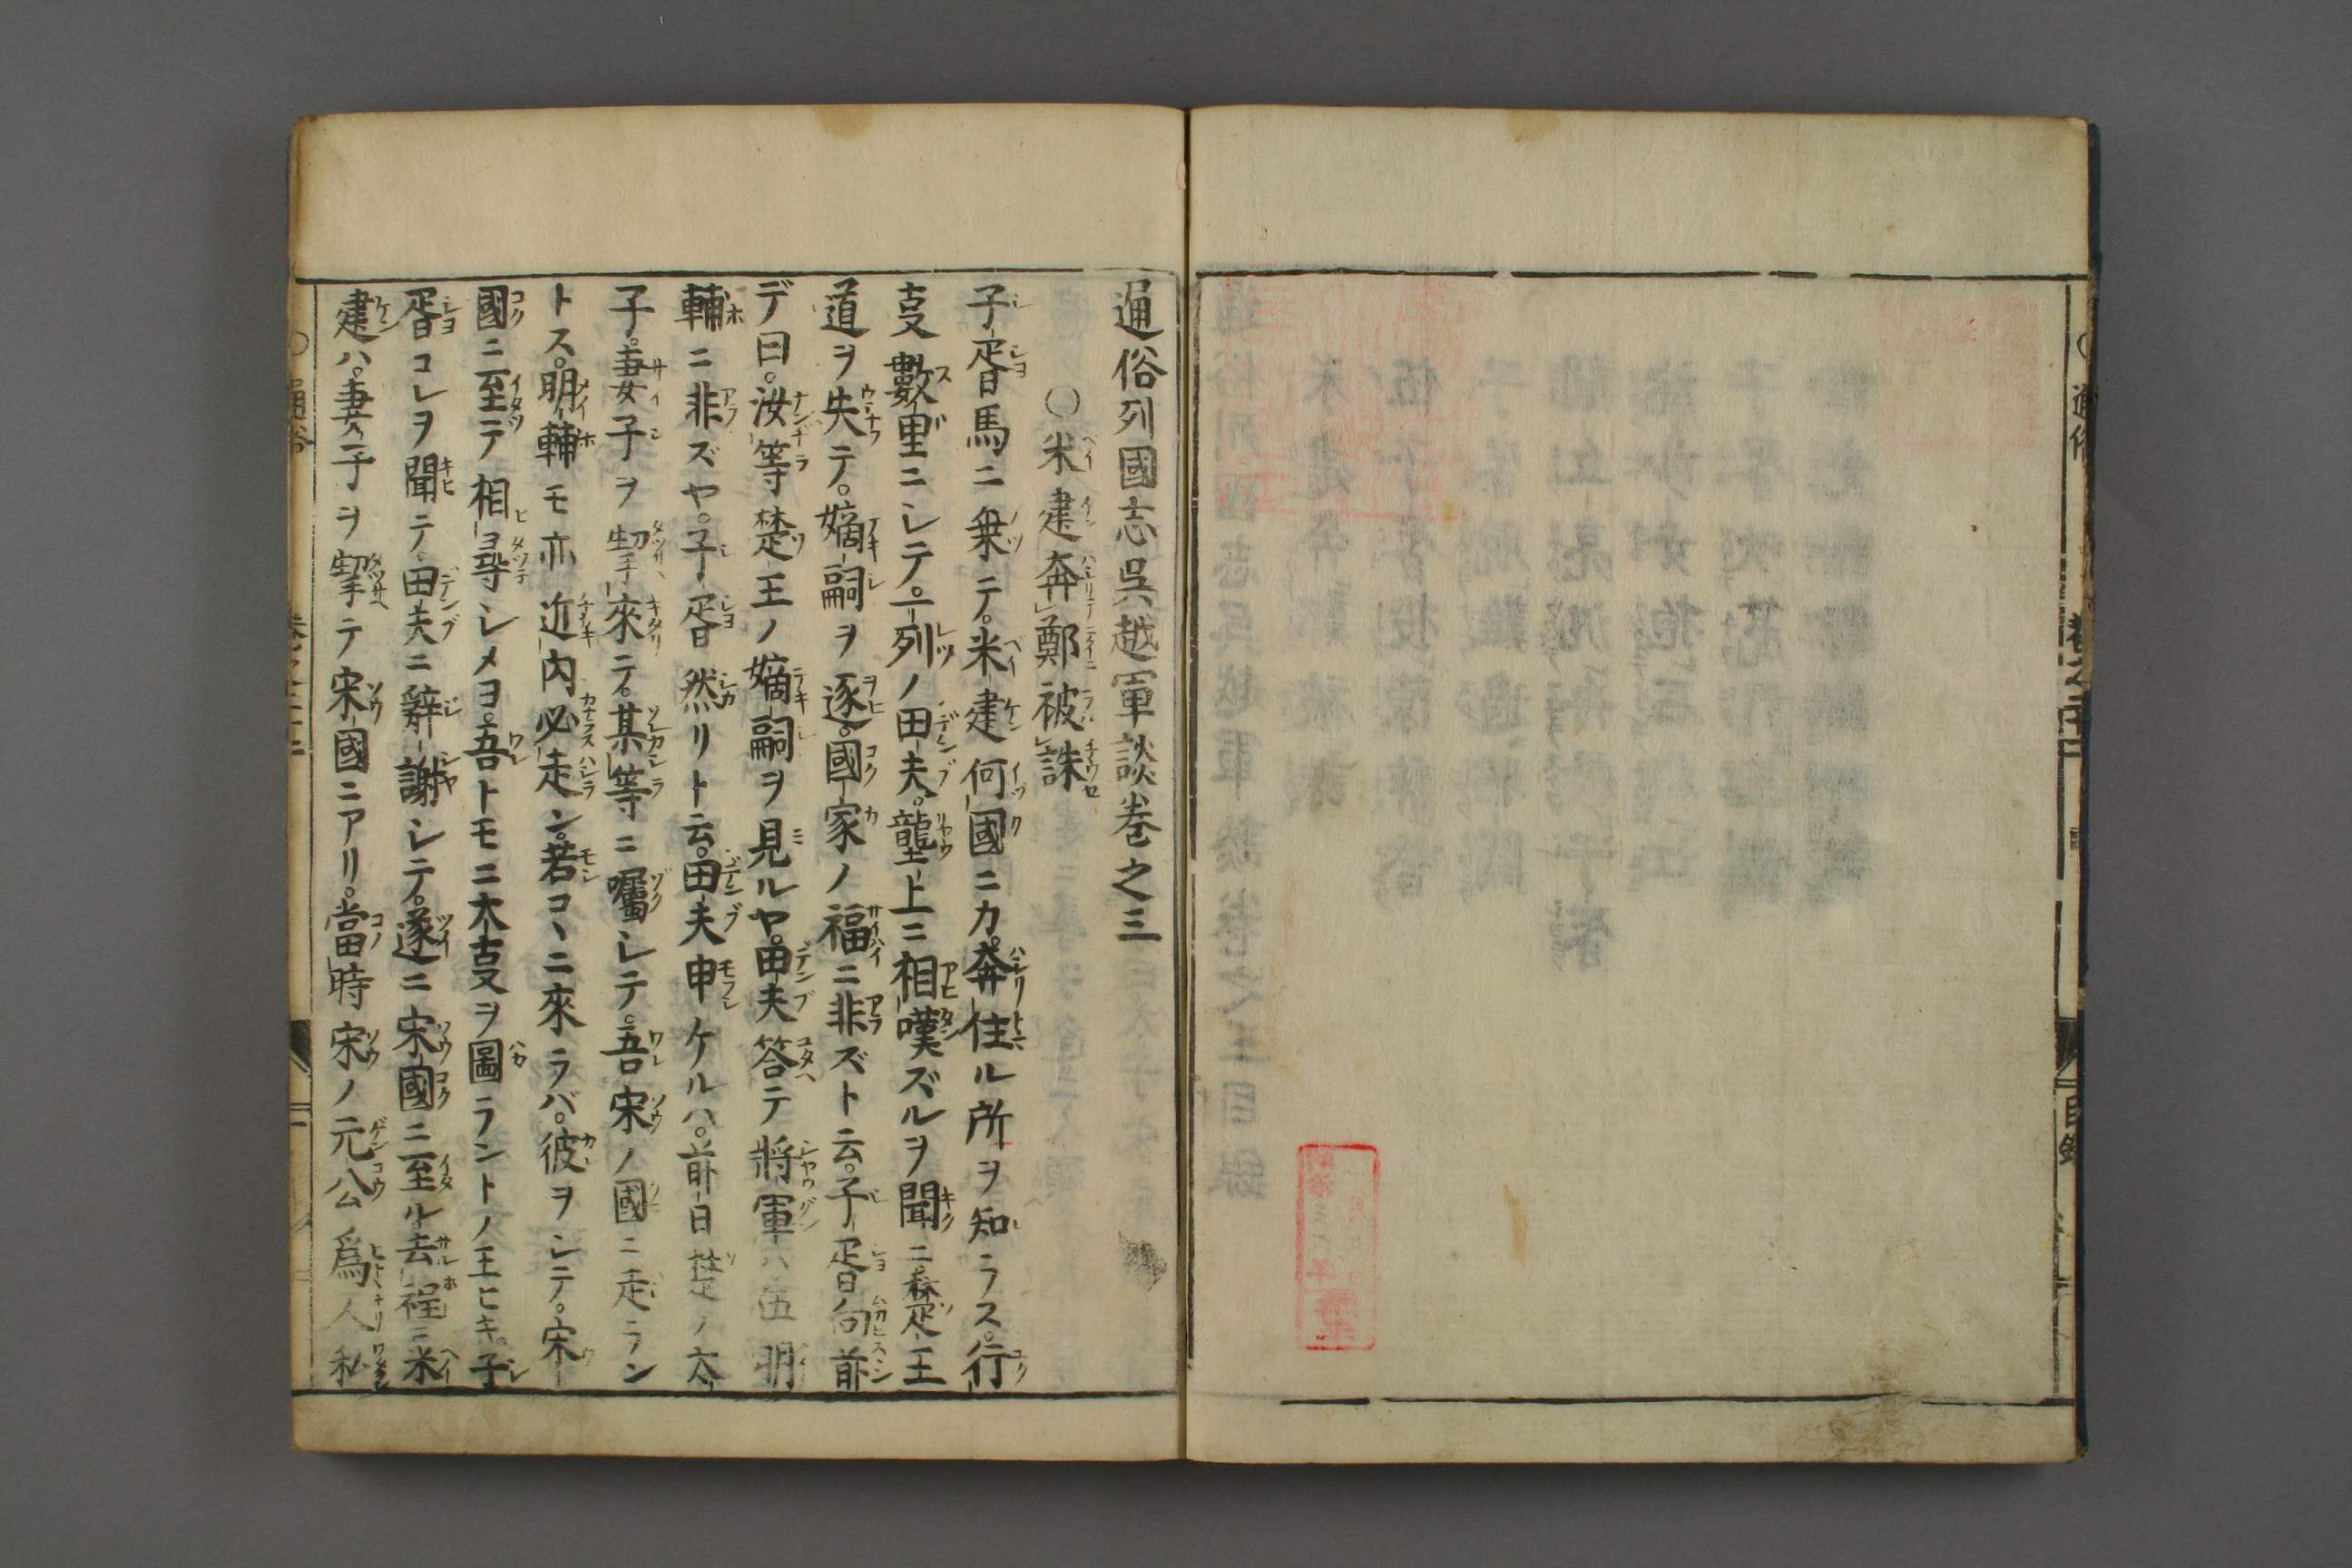 通俗列國志呉越軍談巻之三
○米建奔鄭被誅
子胥馬ニ乗テ。米建何國ニカ。奔住ル所ヲ知ラス。行
支數里ニシテ。一列ノ田夫。壟上ニ相嘆ズルヲ聞ニ。楚王
道ヲ失テ。嫡嗣ヲ逐。國家ノ福ニ非ズト云。子胥向前
デ曰。汝等楚王ノ嫡嗣ヲ見ルヤ。田夫答テ將軍ハ伍明
輔ニ非ズヤ。子胥然リト云。田夫申ケルハ。前日楚ノ太
子。妻子ヲ挈來テ。某等ニ囑シテ。吾宋ノ國ニ走ラン
トス。明輔モ亦近内必走ン。若コヽニ來ラバ。彼ヲシテ。宋
國ニ至テ相尋シメヨ。吾トモニ大支ヲ圖ラントノ玉ヒキ。子
胥コレヲ聞テ田夫ニ辭謝シテ。遂ニ宋國ニ至ル。去程ニ米
建ハ。妻子ヲ挈テ宋國ニアリ。當時宋ノ元公爲人私